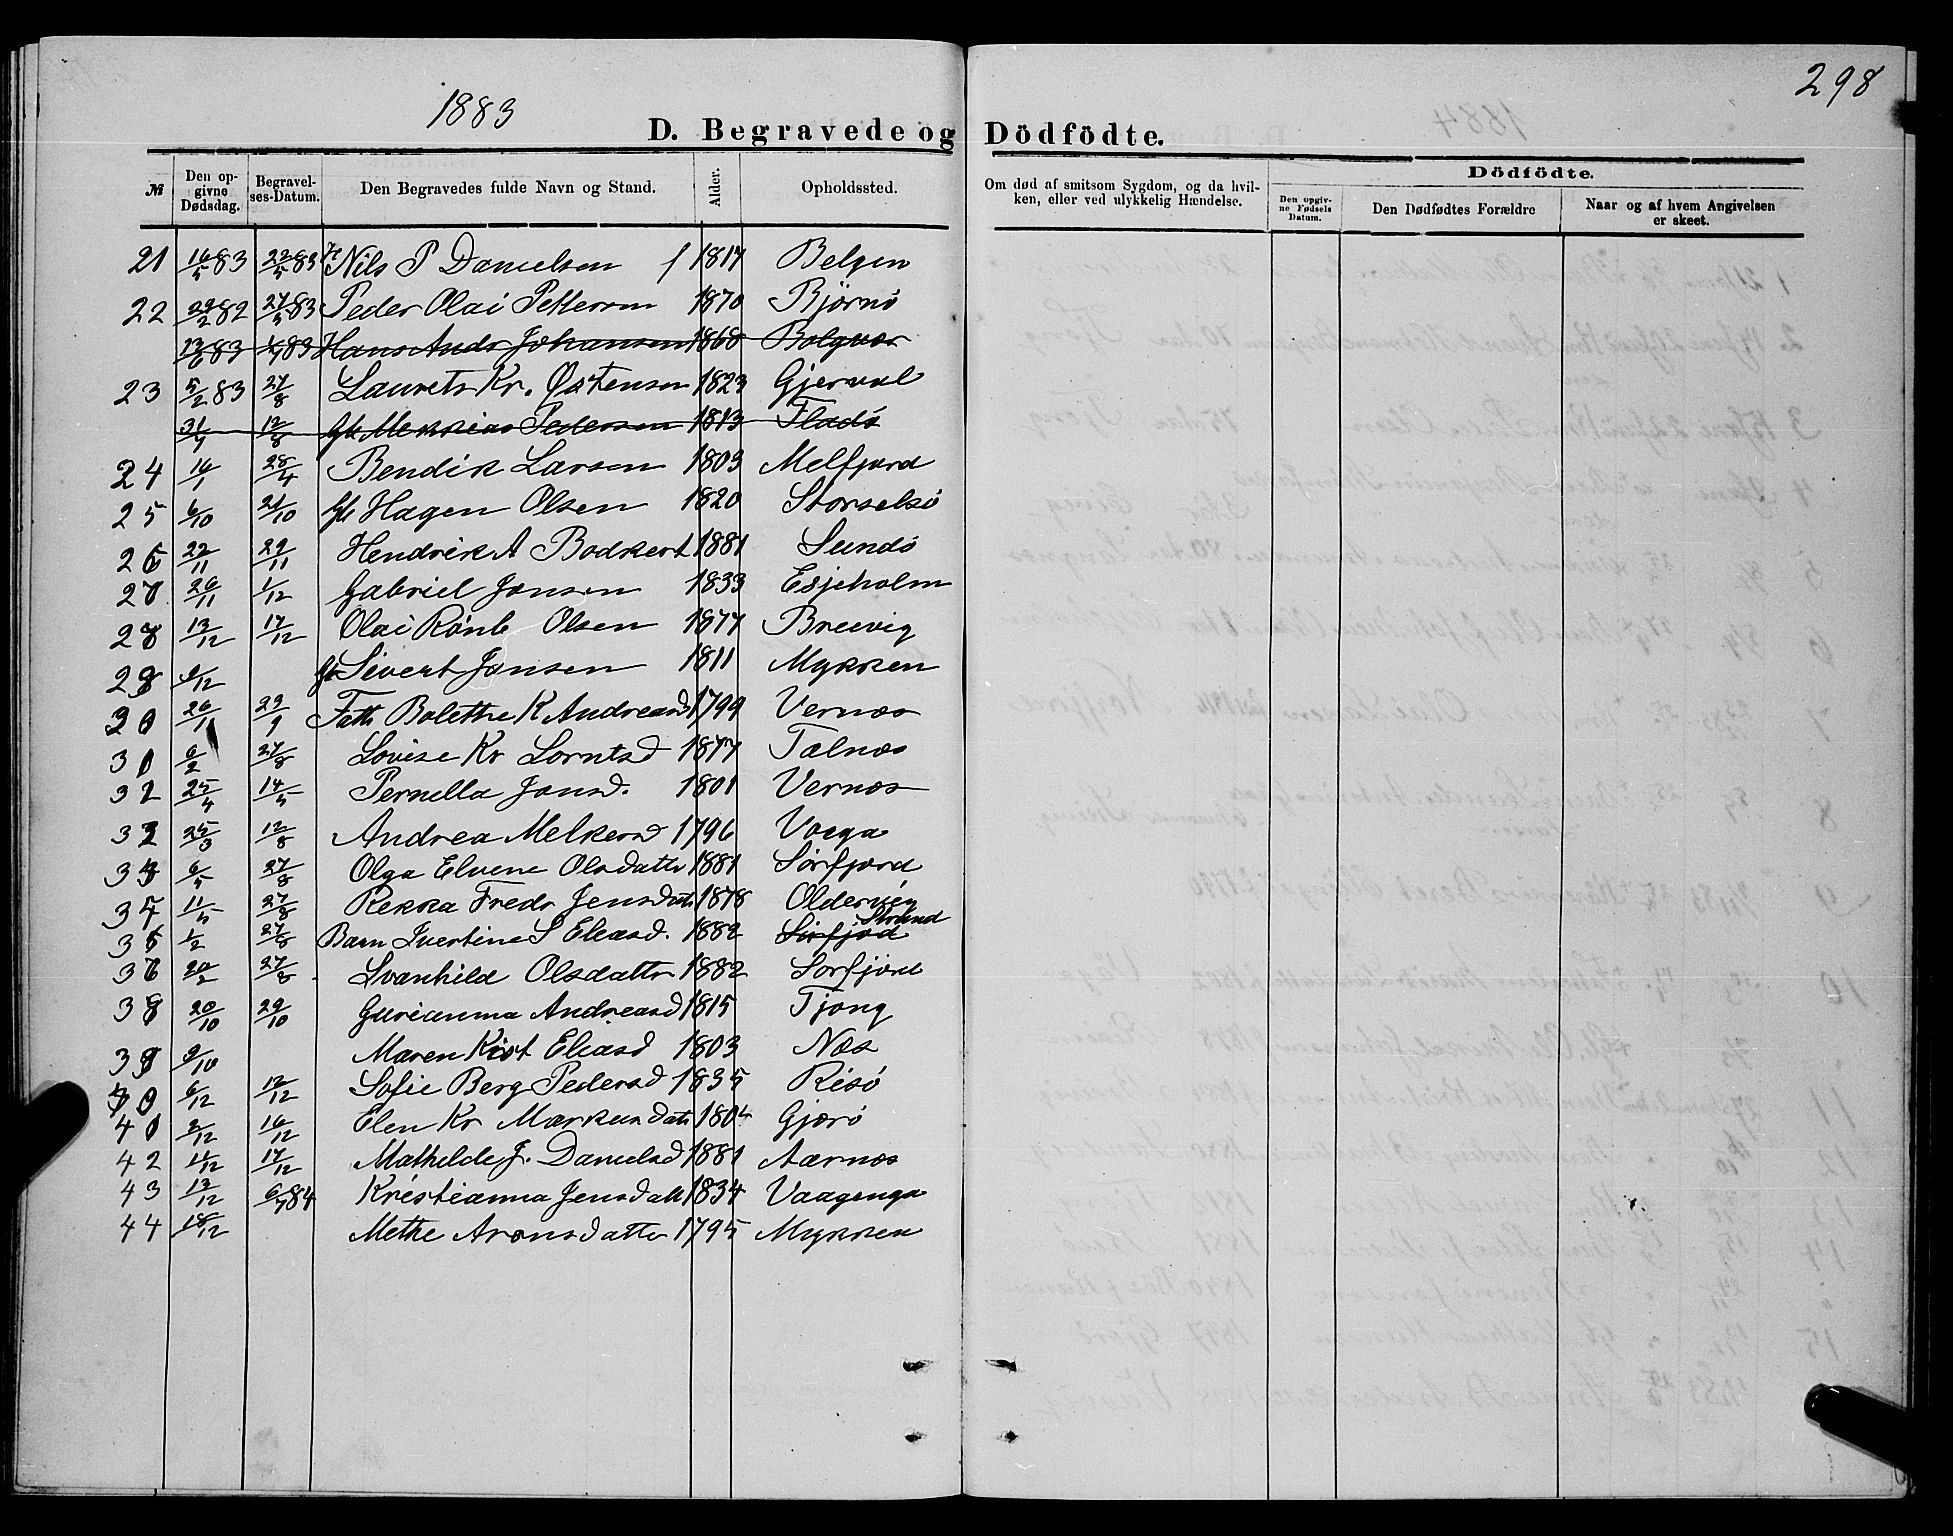 298
1883
D. Begravede og Dödfödte.
№ Den opgivne Dødsdag. Begravelses-Datum. Den Begravedes fulde Navn og Stand. Alder. Opholdssted. Om død af smitsom Sygdom, og da hvilken, eller ved ulykkelig Hændelse. Dödfödte. Den opgivne Fødsels Datum. Den Dødfødtes Forældre Naar og af hvem Angivelsen er skeet.
21 16/5 83 22/5 83 Nils P Danielsen 1817 Belgen
22 29/2 82 27/5 83 Peder Olai Pettersen 1870 Björnö
13/6 83 1/7 83 Hans Andr Johansen 1868 Bolgvær
23 5/2 83 27/8 Laurets Kr. Østensen 1823 Gjerval
31/7 12/8 Gb Mekkias Pedersen 1813 Fladö
24 16/1 28/4 Bendik Larsen 1803 Melfjord
25 6/10 21/10 Gb Hagen Olsen 1820 Storselsö
26 22/11 29/11 Hendrik A Bodkert 1881 Sundö
27 26/11 1/12 Gabriel Jansen 1833 Esjeholm
28 13/12 17/12 Olai Rönb Olsen 1877 Breivig
29 9/12 Gb Sivert Jansen 1811 Mykken
30 26/1 23/9 Fatt. Bolethe K Andreasd 1799 Vernæs
31 6/2 27/8 Lovise Kr Lorntsd 1877 Talnæs
32 25/4 14/5 Pernella Jonsd. 1801 Vernæs
33 25/3 12/8 Andrea Melkersd 1796 Vaaga
34 6/5 27/8 Olga Elvene Olsdatter 1881 Sörfjord
35 11/5 27/8 Rekka Fredr Jensdatr 1878 Oldervig
36 1/2 27/8 Barn Ivertine S Eliasd. 1882 Sörfjord Strand
37 20/2 27/8 Svanhild Olsdatter 1882 Sorfjord
38 20/10 29/10 Gurianna Andreasd 1815 Tjong
39 9/10 Maren Krist Eliasd 1803 Næs
40 6/12 12/12 Sofie Berg Pedersd 1835 Risö
41 2/12 16/12 Elen Kr Markusdatr 1804 Gjærö
42 11/12 17/12 Mathilde J. Danielsd 1881 Aarnæs
43 12/12 6/7 84 Kristianna Jensdatt 1834 Vaagenga
44 18/12 Methe Aronsdatter 1795 Mykken